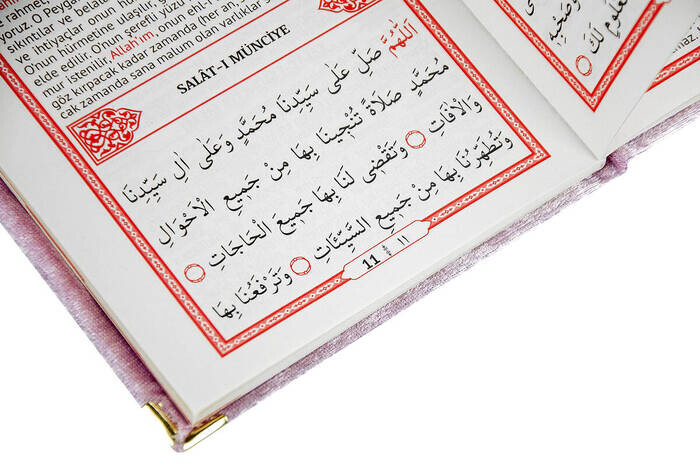 rahmet,
yoruz. O
sıkıntılar ve
ve ihtiyaçlar onun
O'nun hürmetine ulaşılır,
elde edilir. O'nun şerefli yüzü
mur istenilir. Allah'ım, onun ehl-i
göz kırpacak kadar zamanda (her an,
cak zamanda sana malum olan varlıklar
SALÂT-I MÜNCİYE
اَللّٰهُمَّ صَلِّ عَلٰى سَيِّدِنَا مُحَمَّدٍ وَعَلٰى اٰلِ سَيِّدِنَا
مُحَمَّدٍ صَلَاةً تُنْجِينَا بِهَا مِنْ جَمِيعِ الْاَحْوَالِ
وَالْاٰفَاتِ وَتَقْضِى لَنَا بِهَا جَمِيعَ الْحَاجَاتِ
وَتُطَهِّرُنَا بِهَا مِنْ جَمِيعِ السَّيِّئَاتِ وَتَرْفَعُنَا بِهَا
11 ١١
وَصَحْبِهِ
مَعْلُومٍ لَكَ